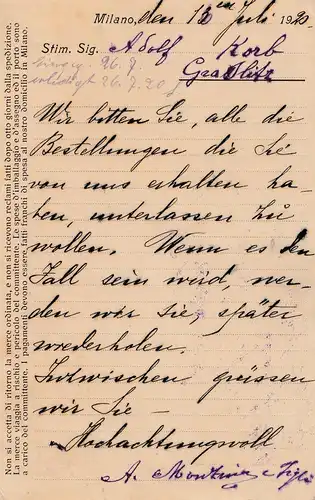 Milano, den 12ten Juli 1920
Stim. Sig. Adolf Korb
Graslitz
26. 7.
erledigt 26. 7. 20
Wir bitten Sie, alle die
Bestellungen die Sie
von uns erhalten ha-
ben, unterlassen zu
wollen. Wenn es den
Fall sein wird, wer-
den wir sie, später
wiederholen.
Inzwischen grüssen
wir Sie
Hochachtungsvoll
A.
Non si accetta di ritorno la merce ordinata, e non si ricevono reclami fatti dopo otto giorni dalla spedizione.
La merce viaggia a rischio e pericolo del committente. Le spese d'imballaggio e d'assegno o di porto sono
a carico del committente. I pagamenti devono essere fatti franchi di spesa al nostro domicilio in Milano.